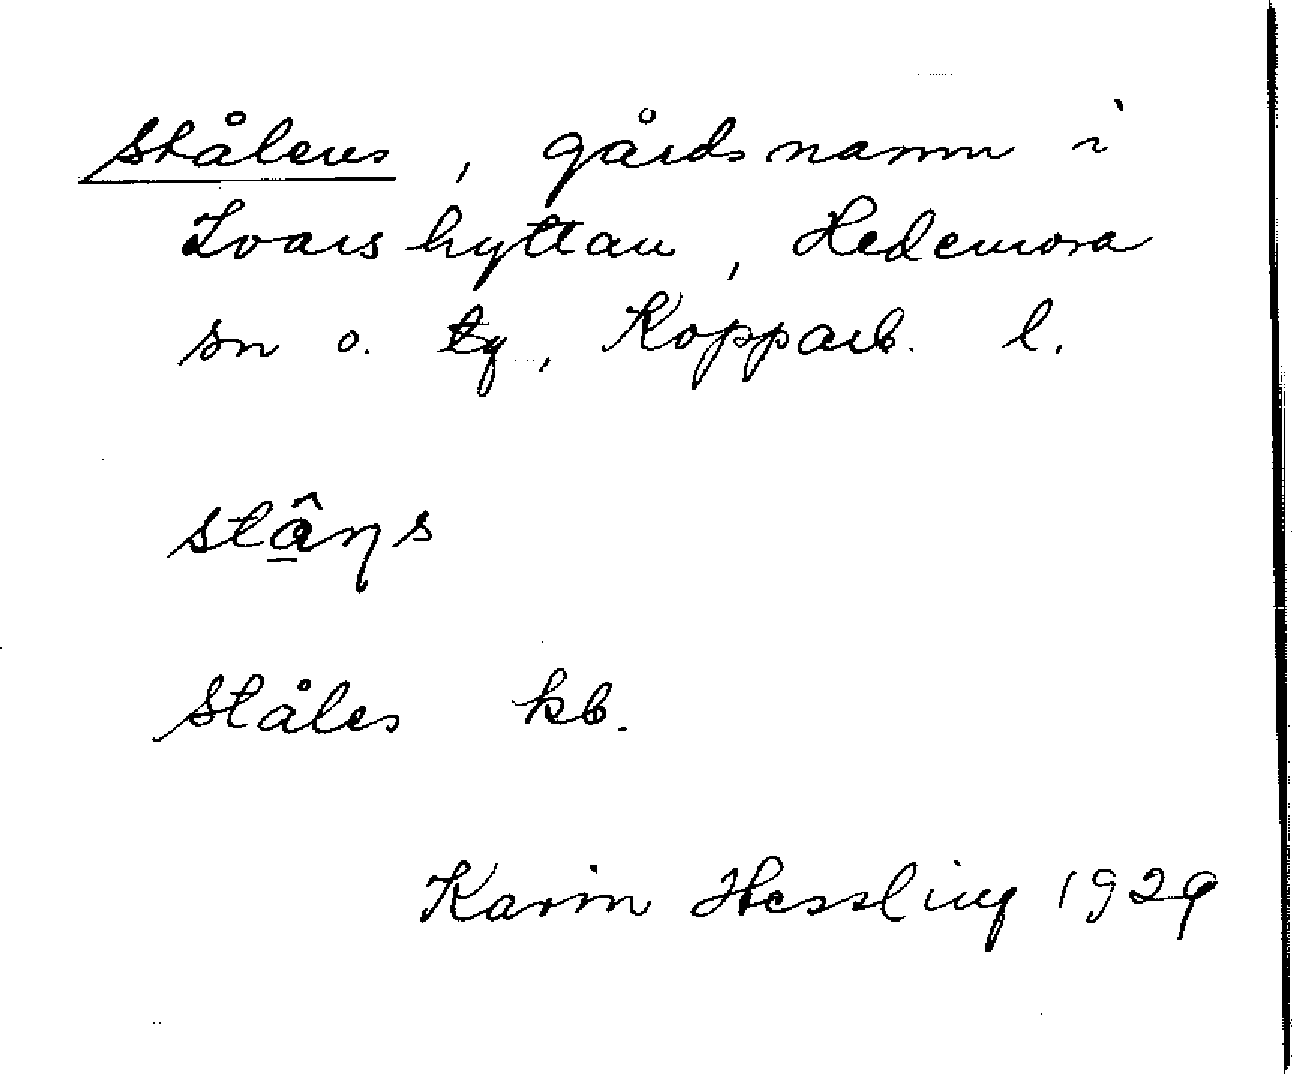 Stålens, gårdsnamn i
Ivarshyttan, Hedemora
sn o. tg, Kopparb. l.
stâŋs
Ståles kb.
Karin Hessling 1929